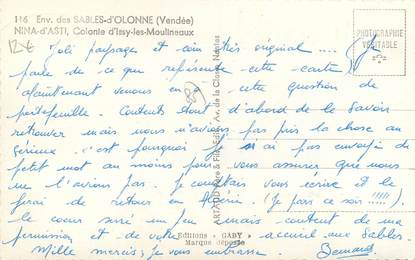 116 Env. des SABLES-d'OLONNE (Vendée)
NINA-d'ASTI, Colonie d'Issy-les-Moulineaux
PHOTOGRAPHIE
VÉRITABLE
12€
Joli paysage et coin très original .... Je
parle de ce que représente cette carte!
Maintenant venons en à cette question de
portefeuille. Contents tout d'abord de le savoir
retrouver mais nous n'avions pas pris la chose au
sérieux. c'est pourquoi je n'ai pas envoyé de
petit mot au moins pour vous assurer que nous
ne l'avions pas. Je comptais vous écrire et le
ferai de retour en Algérie (Je pars ce soir !!!!!)
le coeur serré un peu mais content de ma
permission et de votre accueil aux Sables
Mille mercis; je vous embrasse. Bernard
85
ARTAUD Père & Fils, Edit., Av. de la Close, Nantes
Editions "GABY"
Marque déposée